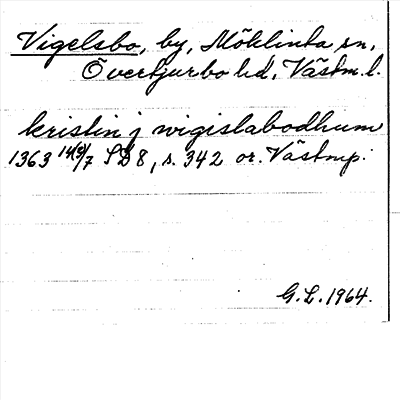 Vigelsbo, by, Möklinta sn,
Övertjurbo hd, Västm. l.
kristin j wigislabodhum
1363 14/7 SD 8, s. 342 or. Västmp.
G. L. 1964.